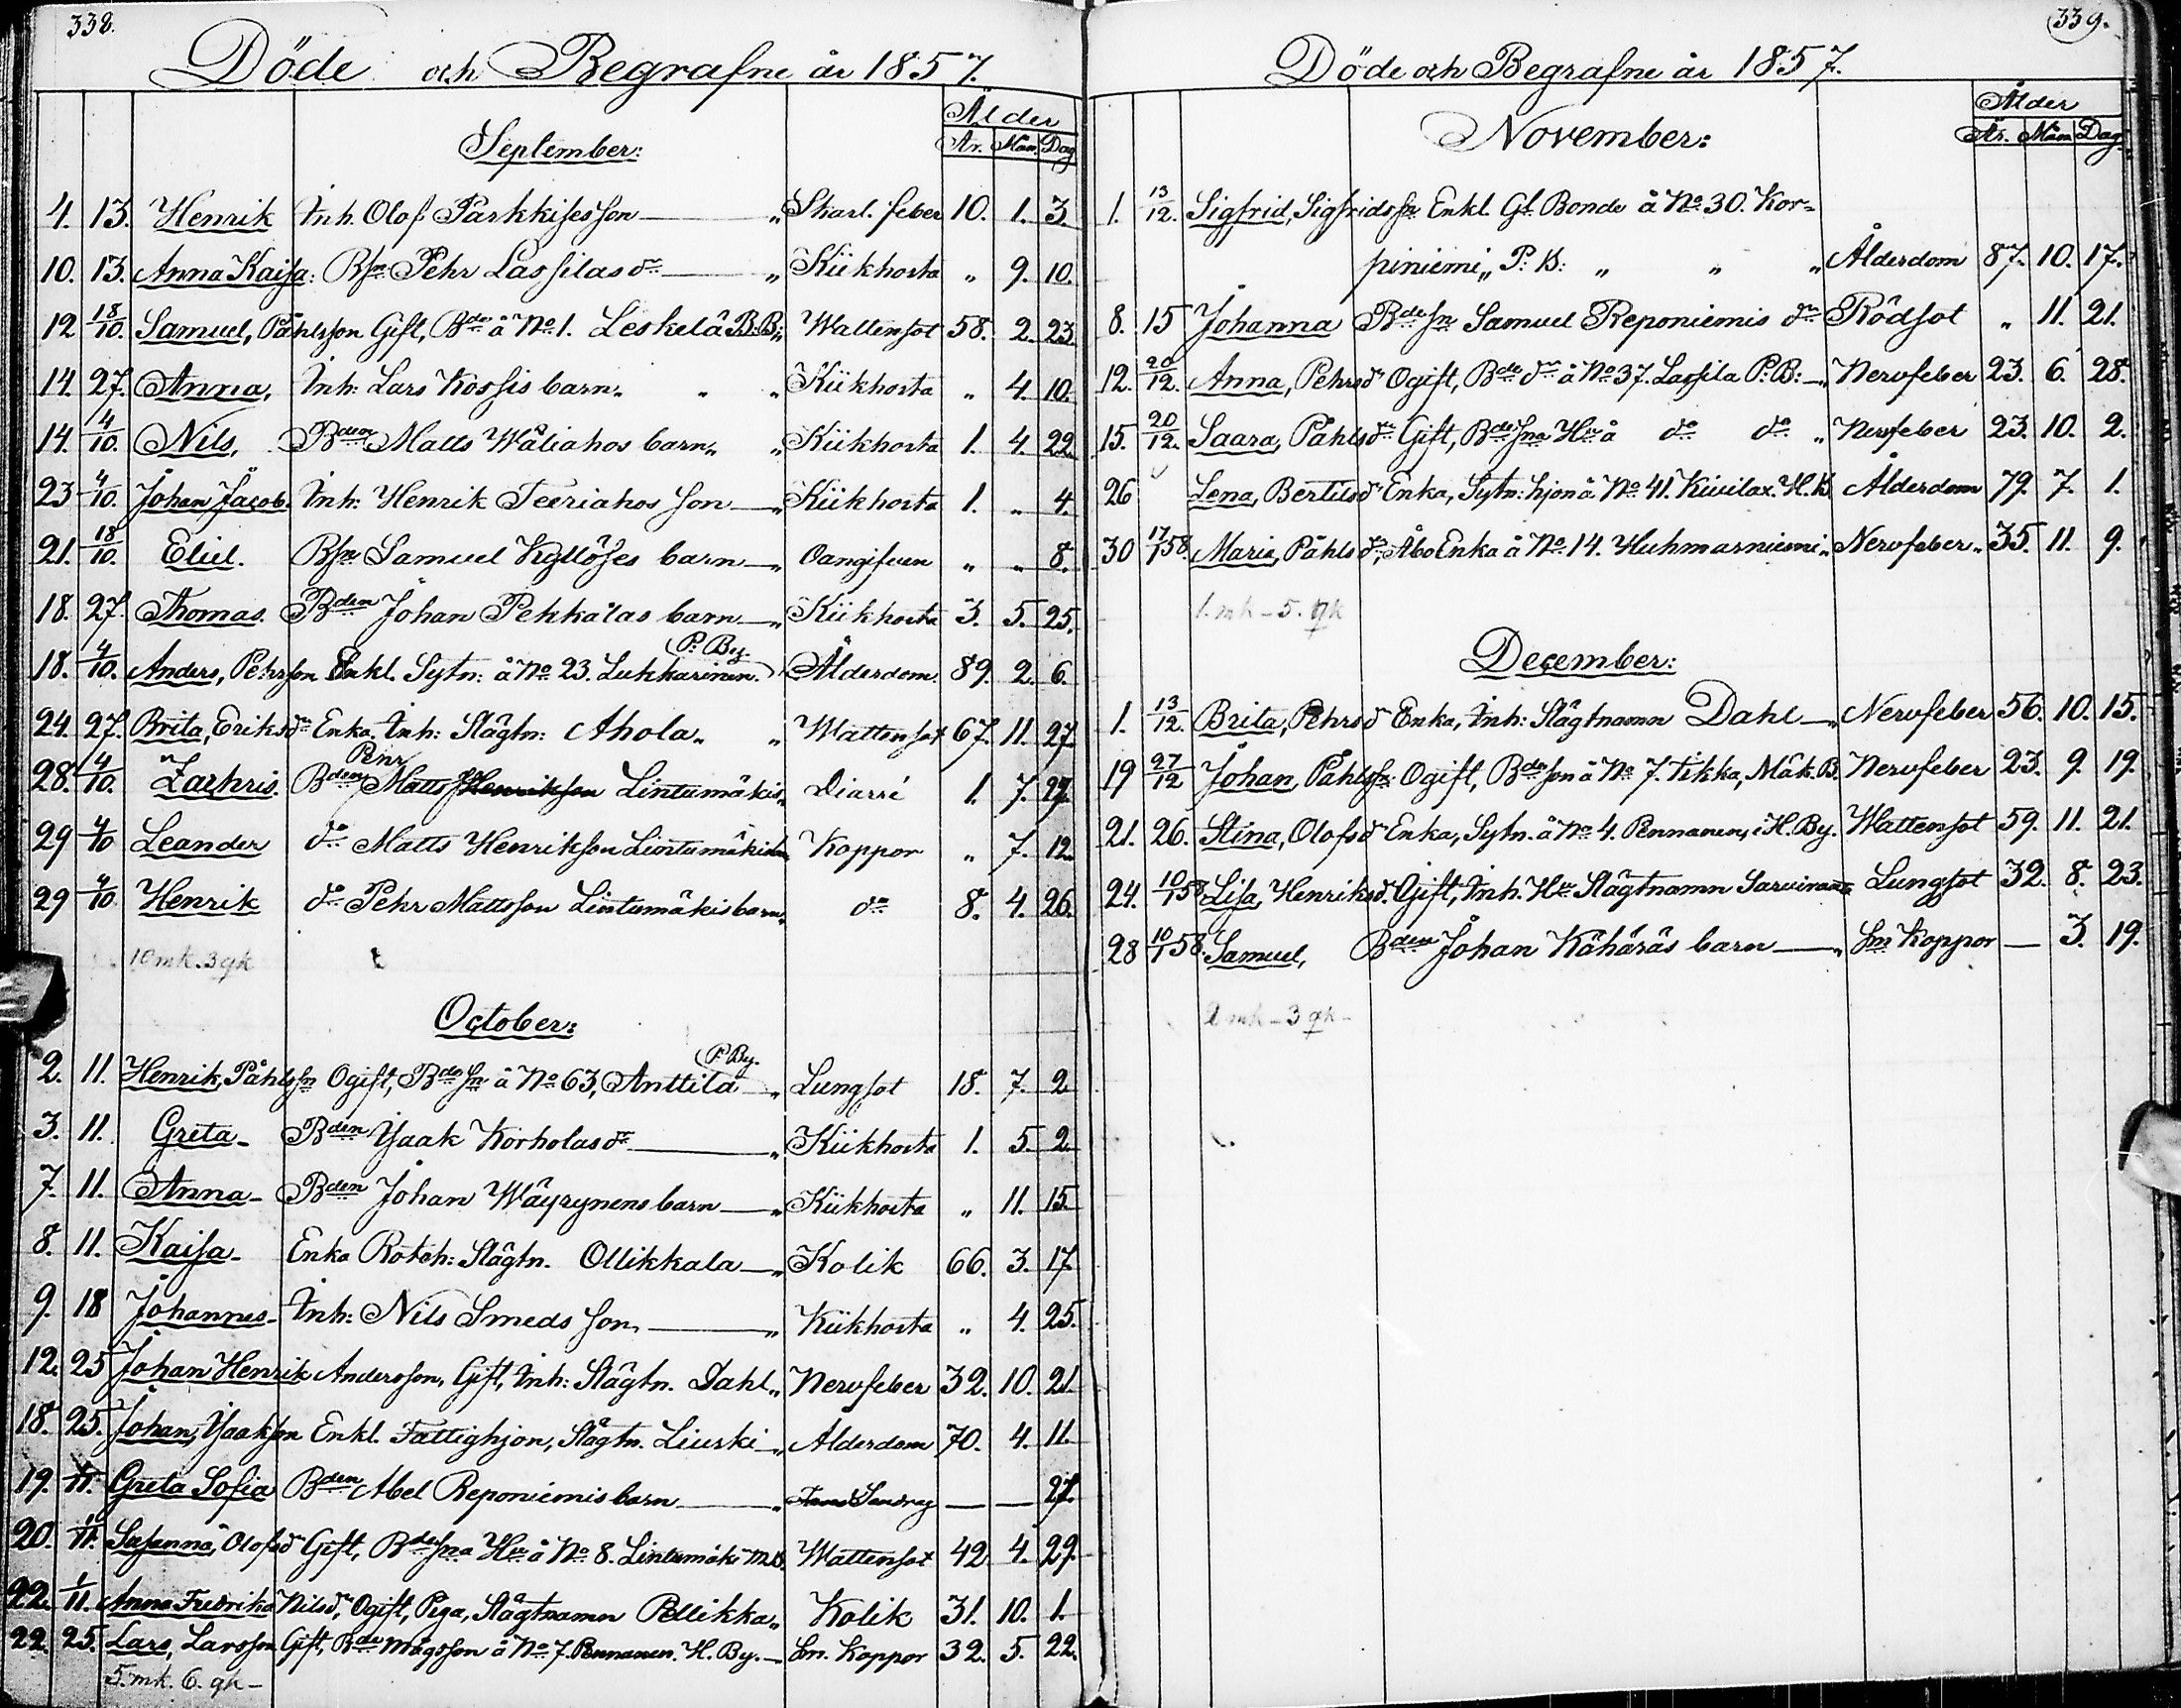 338.
Döde och Begrafne år 1857.
Ålder
September:
År. Mån. Dag
4. 13. Henrik Inh. Olof Parkkises son " Skarl. feber 10. 1. 3.
10. 13. Anna Kaisa: Bsn Pehr Lassilas dr " Kikhosta " 9. 10.
12 18/10. Samuel, Påhlsson Gift, Bde å No 1. Leskelä B.B: " Wattensot 58. 2. 23.
14. 27. Anna, Inh: Lars Kossis barn " " " Kikhosta " 4. 10.
14. 4/10. Nils, Bden Matts Wäliahos barn " " Kikhosta 1. 4. 22.
23 4/10. Johan Jacob. Inh: Henrik Teeriahos son " Kikhosta 1. " 4.
21. 18/10. Eliel. Bsn Samuel Kyllöses barn " Oangifven " " 8.
18. 27. Thomas. Bden Johan Pekkalas barn " Kikhosta 3. 5. 25.
P. By.
18. 4/10. Anders, Pehrson Enkl. Sytn: å No 23. Lukkarinen. Ålderdom. 89. 2. 6.
24. 27. Brita, Eriksdr Enka, Inh: Slägtn: Ahola " " Wattensot 67. 11. 27.
Pehr
28. 4/10. Zachris. Bden Matts Henrikson Lintumäkis " Diarré 1. 7. 27.
29 4/10 Leander do Matts Henrikson Lintumäkis Koppor " 7. 12.
29 4/10 Henrik do Pehr Mattsson Lintumäkis barn " do 8. 4. 26.
10 mk. 3 qk
October:
P. By.
2. 11. Henrik, Påhlssn Ogift, Bde sn å No 63, Anttila " Lungsot 18. 7. 2
3. 11. Greta - Bden Isaak Korholas dr " Kikhosta 1. 5. 2
7. 11. Anna - Bden Johan Wäyrynens barn " Kikhosta " 11. 15.
8. 11. Kaisa - Enka Roteh: Slägtn. Ollikkala " Kolik 66. 3. 17.
9. 18 Johannes - Inh: Nils Smeds son, " Kikhosta " 4. 25.
12. 25 Johan Henrik Andersson, Gift, Inh: Slägtn. Dahl " Nervfeber 32. 10. 21.
18. 25. Johan, Isaakson Enkl. Fattighjon, Slägtn. Liuski " Ålderdom 70. 4. 11.
19. 1/11. Greta Sofia Bden Abel Reponiemis barn " — — 27.
20. 1/11. Susanna, Olofsdr Gift, Bdesns Hu å No 8. Lintumäki M.B. Wattensot 42 4. 29.
22. 1/11. Anna Fredrika Nilsdr, Ogift, Piga, Slägtnamn Pellikka " Kolik 31. 10. 1.
22. 25. Lars, Larsson Gift, Bde Mågsson å No 7. Pennanen. H. By. - Sm. Koppor 32. 5. 22.
5. mk. 6. qk -
339.
Döde och Begrafne år 1857.
Ålder
November:
År. Mån Dag
1. 13/12. Sigfrid, Sigfridssn Enkl. Gl. Bonde å No 30. Kor=
piniemi " P: B: " " " Ålderdom 87. 10. 17.
8. 15 Johanna Bde sn Samuel Reponiemis dr Rödsot " 11. 21.
12. 20/12. Anna, Pehrsdr Ogift, Bde dr å No 37. Lassila P: B: " Nervfeber 23. 6. 28.
15. 20/12. Saara, Påhlsdr Gift, Bdesns Hu å do do " Nervfeber 23. 10. 2.
26 Lena, Bertilsdr Enka, Sytn: hjon å No 41. Kivilax. H. B. Ålderdom 79. 7. 1.
30 17/1 58. Maria, Påhlsdr, Åbo Enka å No 14. Huhmarniemi " Nervfeber " 35. 11. 9.
1. mk - 5. qk
December:
1. 13/12. Brita, Pehrsdr Enka, Inh: Slägtnamn Dahl " Nervfeber 56. 10. 15.
19 27/12 Johan, Påhlssn: Ogift, Bdeson å No 7. Tikka, Mäk. B. Nervfeber 23. 9. 19.
21. 26. Stina, Olofsdr Enka, Sytn. å No 4. Pennanen, i H. By. Wattensot 59. 11. 21.
24. 10/1 58. Lisa, Henriksdr. Gift, Inh. Hu Slägtnamn Sarvinanä Lungsot 32. 8. 23.
28 10/1 58. Samuel, Bden Johan Kähäräs barn " Sm Koppor — 3. 19.
2 mk - 3 qk -